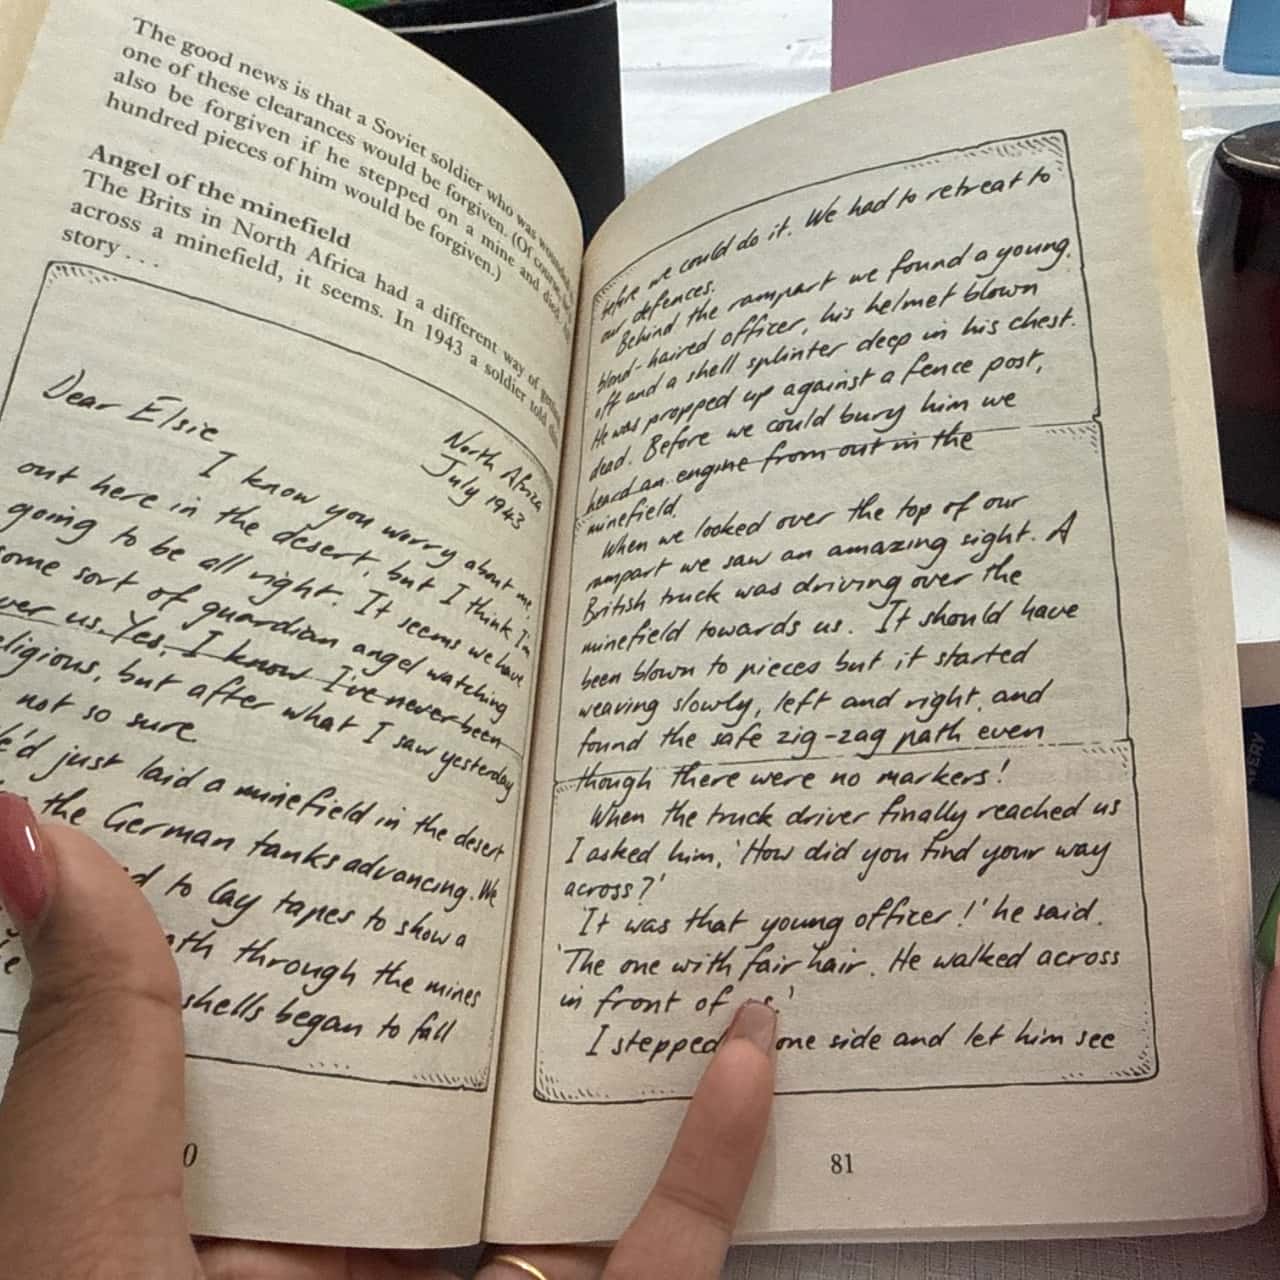 The good news is that a Soviet soldier who was
one of these clearances would be forgiven. (Of course
also be forgiven if he stepped on a mine and died.
hundred pieces of him would be forgiven.)
Angel of the minefield
The Brits in North Africa had a different way of
across a minefield, it seems. In 1943 a soldier told this
story . . .
North Africa
July 1943
Dear Elsie
I know you worry about me
out here in the desert, but I think I'm
going to be all right. It seems we have
some sort of guardian angel watching
over us. Yes, I know I've never been
religious, but after what I saw yesterday
not so sure.
We'd just laid a minefield in the desert
the German tanks advancing. We
to lay tapes to show a
through the mines
shells began to fall
80
before we could do it. We had to retreat to
our defences.
Behind the rampart we found a young,
blond-haired officer, his helmet blown
off and a shell splinter deep in his chest.
He was propped up against a fence post,
dead. Before we could bury him we
heard an engine from out in the
minefield.
When we looked over the top of our
rampart we saw an amazing sight. A
British truck was driving over the
minefield towards us. It should have
been blown to pieces but it started
weaving slowly, left and right, and
found the safe zig-zag path even
though there were no markers!
When the truck driver finally reached us
I asked him, 'How did you find your way
across?'
'It was that young officer!' he said.
'The one with fair hair. He walked across
in front of us.'
I stepped one side and let him see
81
AVERY